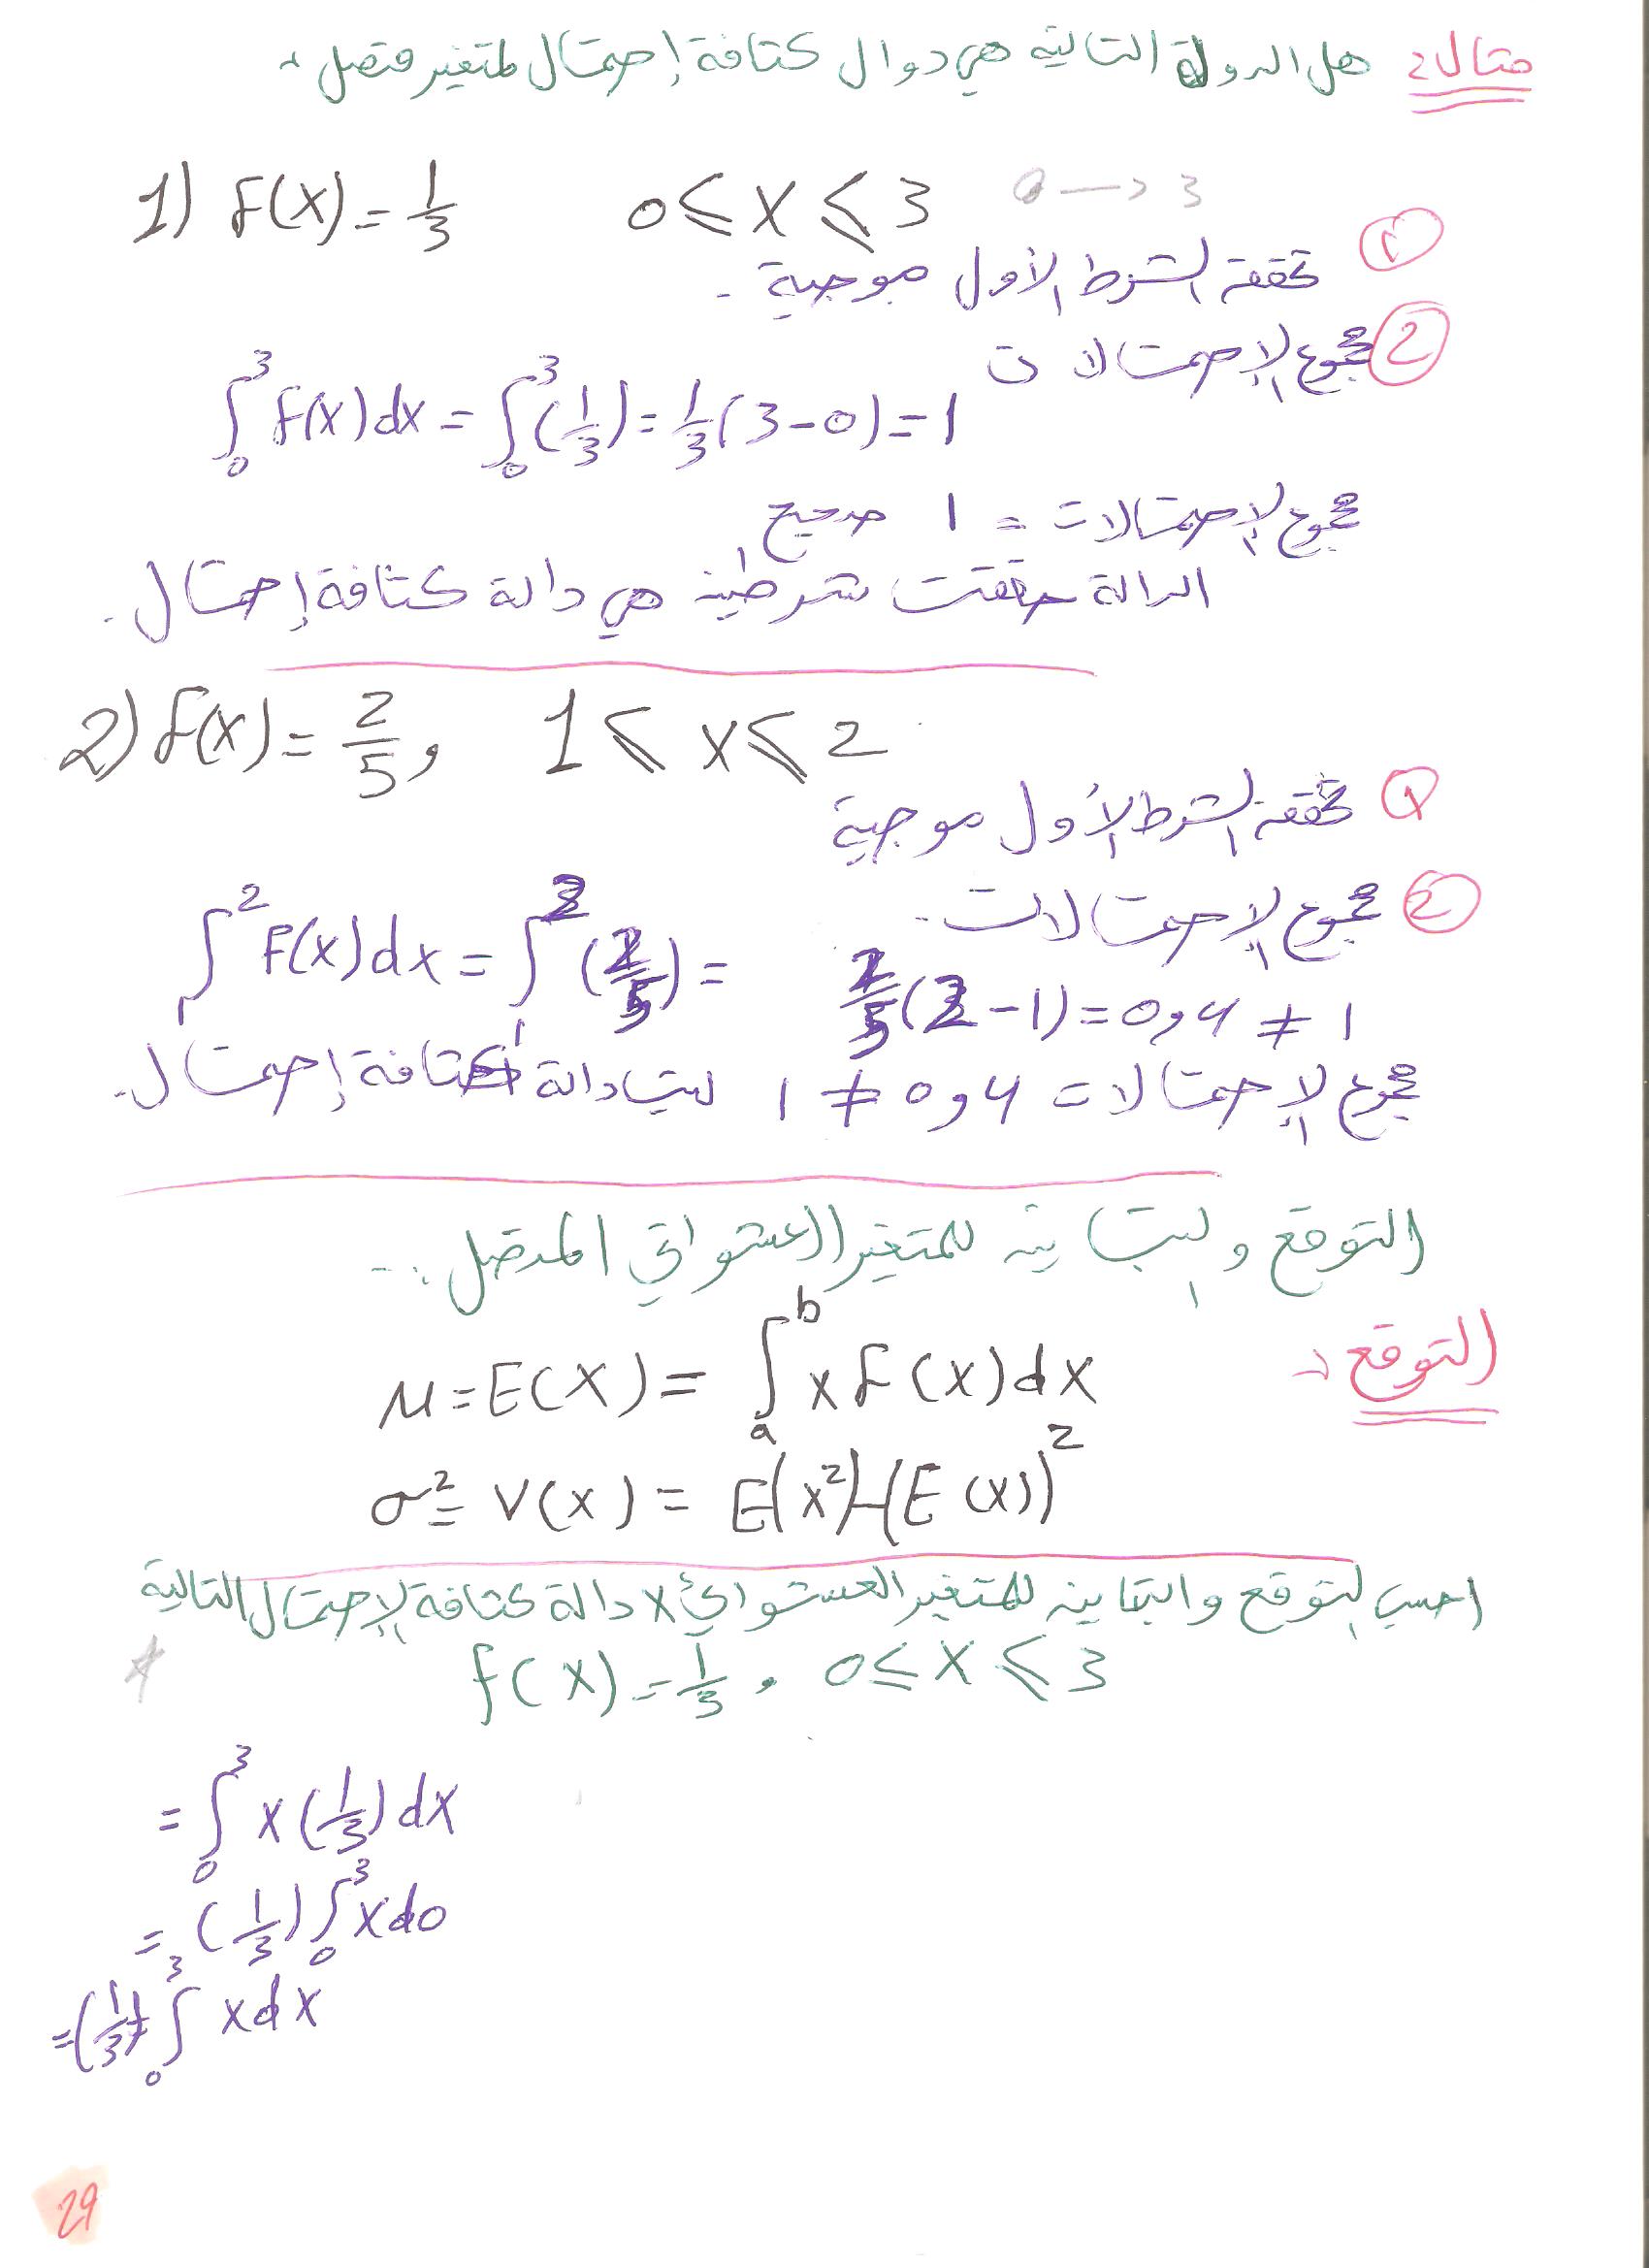 مثال: هل الدولة التالية هي دوال كثافة إحتمال لمتغير متصل :
1) f(x) = 1/3    0 ≤ x ≤ 3    0 → 3
① تحققه الشرط الأول موجبة .
② مجموع الإحتمالات
∫₀³ f(x) dx = ∫₀³ (1/3) = 1/3 (3-0) = 1
مجموع الإحتمالات = 1 صحيح
الدالة حققت شرطين هي دالة كثافة إحتمال .
2) f(x) = 2/5 ,    1 ≤ x ≤ 2
① تحققه الشرط الأول موجبة
② مجموع الإحتمالات .
∫₁² F(x) dx = ∫₁² (2/5) = 2/5 (2-1) = 0,4 ≠ 1
مجموع الإحتمالات 0,4 ≠ 1 ليست دالة كثافة إحتمال .
التوقع والتباين للمتغير العشوائي المتصل ..
التوقع :
μ = E(X) = ∫ₐᵇ x f(x) dx
σ² = V(x) = E(x²) - (E(x))²
احسب التوقع والتباين للمتغير العشوائي x دالة كثافة الإحتمال التالية
f(x) = 1/3 , 0 ≤ x ≤ 3
= ∫₀³ x (1/3) dx
= (1/3) ∫₀³ x do
= (1/3) ∫₀³ x dx
29